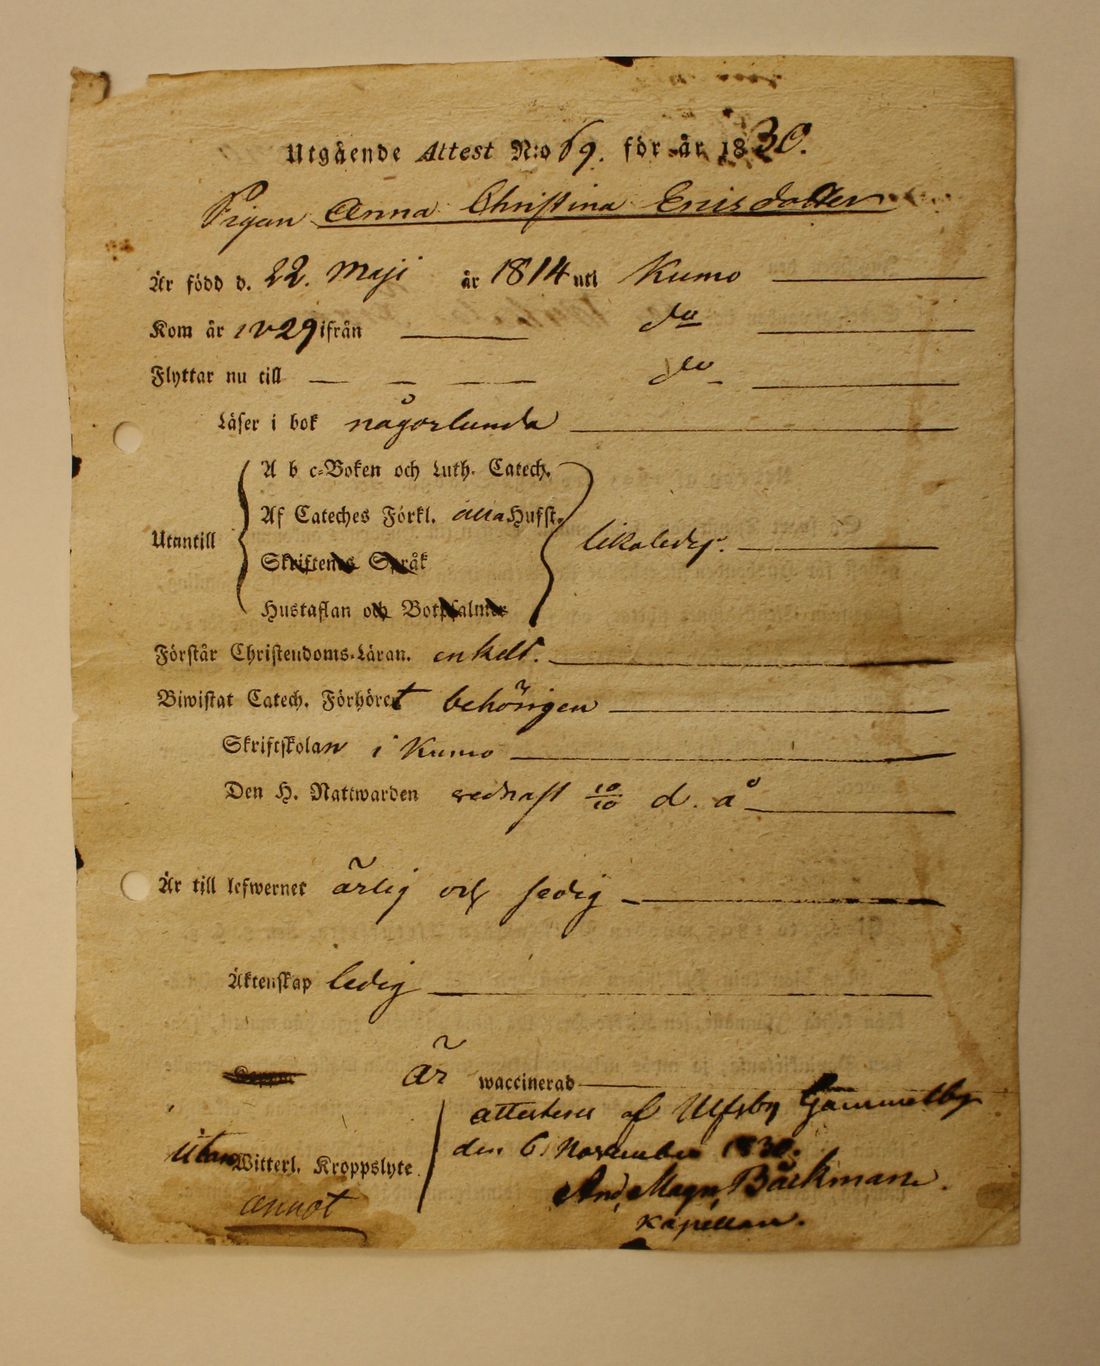 Utgående Attest N:o 69. för år 1830.
Pigan Anna Christina Ericsdotter
Är född d. 22. Maji år 1814 uti Kumo
Kom år 1829 ifrån do
Flyttar nu till do
Läser i bok någorlunda
A b c-Boken och Luth. Catech.
Af Cateches Förkl. Husf.
Utantill likaledes.
Skriftenes Språk
Hustaflan och Botpsalmer
Förstår Christendoms-Läran. enkelt.
Biwistat Catech. Förhöret behörigen
Skriftskolan i Kumo
Den H. Nattwarden sednast 10/10 d. å
Är till lefwernet ärlig och sedig
Äktenskap ledig
är waccinerad
attesterar af Ulfsby Gammelby
den 6 November 1830.
utan Witterl. Kroppslyte
And. Magn. Bäckman.
annot
Kapellan.